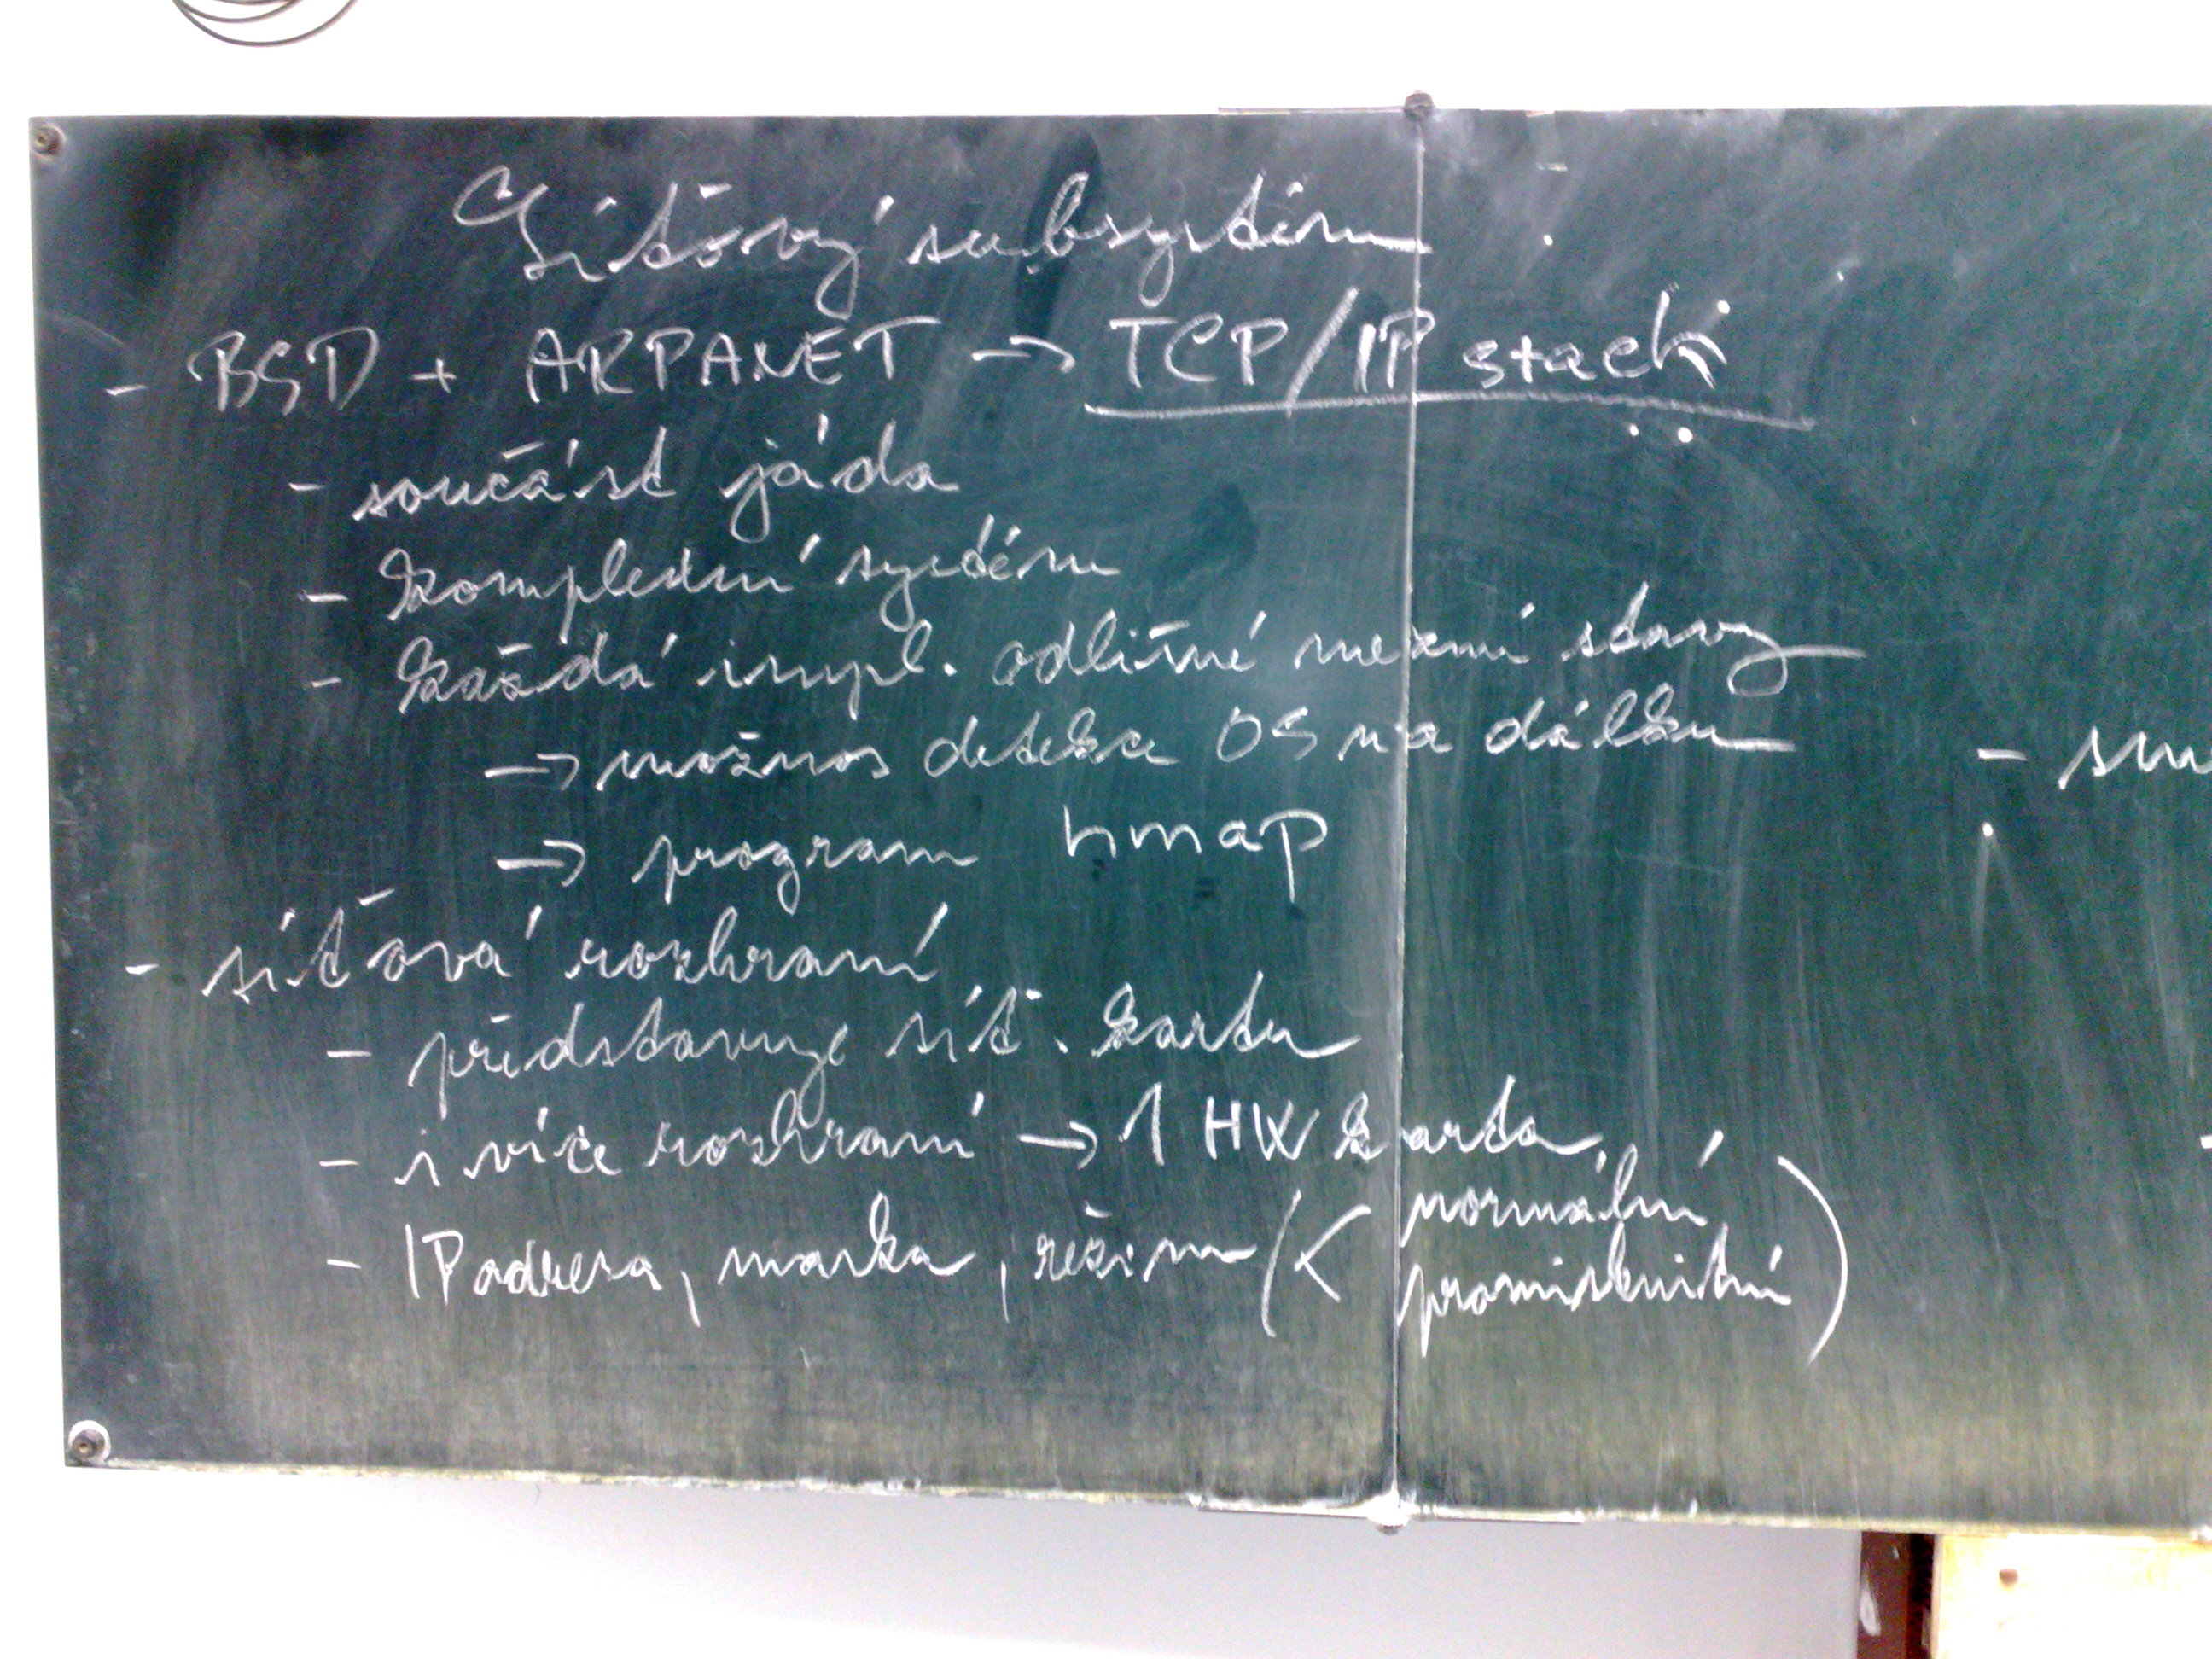 Síťový subsystém
- BSD + ARPANET → TCP/IP stack
- součást jáda
- kompletní systém
- každá impl. odlišné mezní stavy
→ možnos detekce OS na dálku
→ program nmap
- síťová rozhraní
- představuje síť. kartu
- i více rozhraní → 1 HW karta
- IP adresa, maska, režim (< normální
promiskuitní)